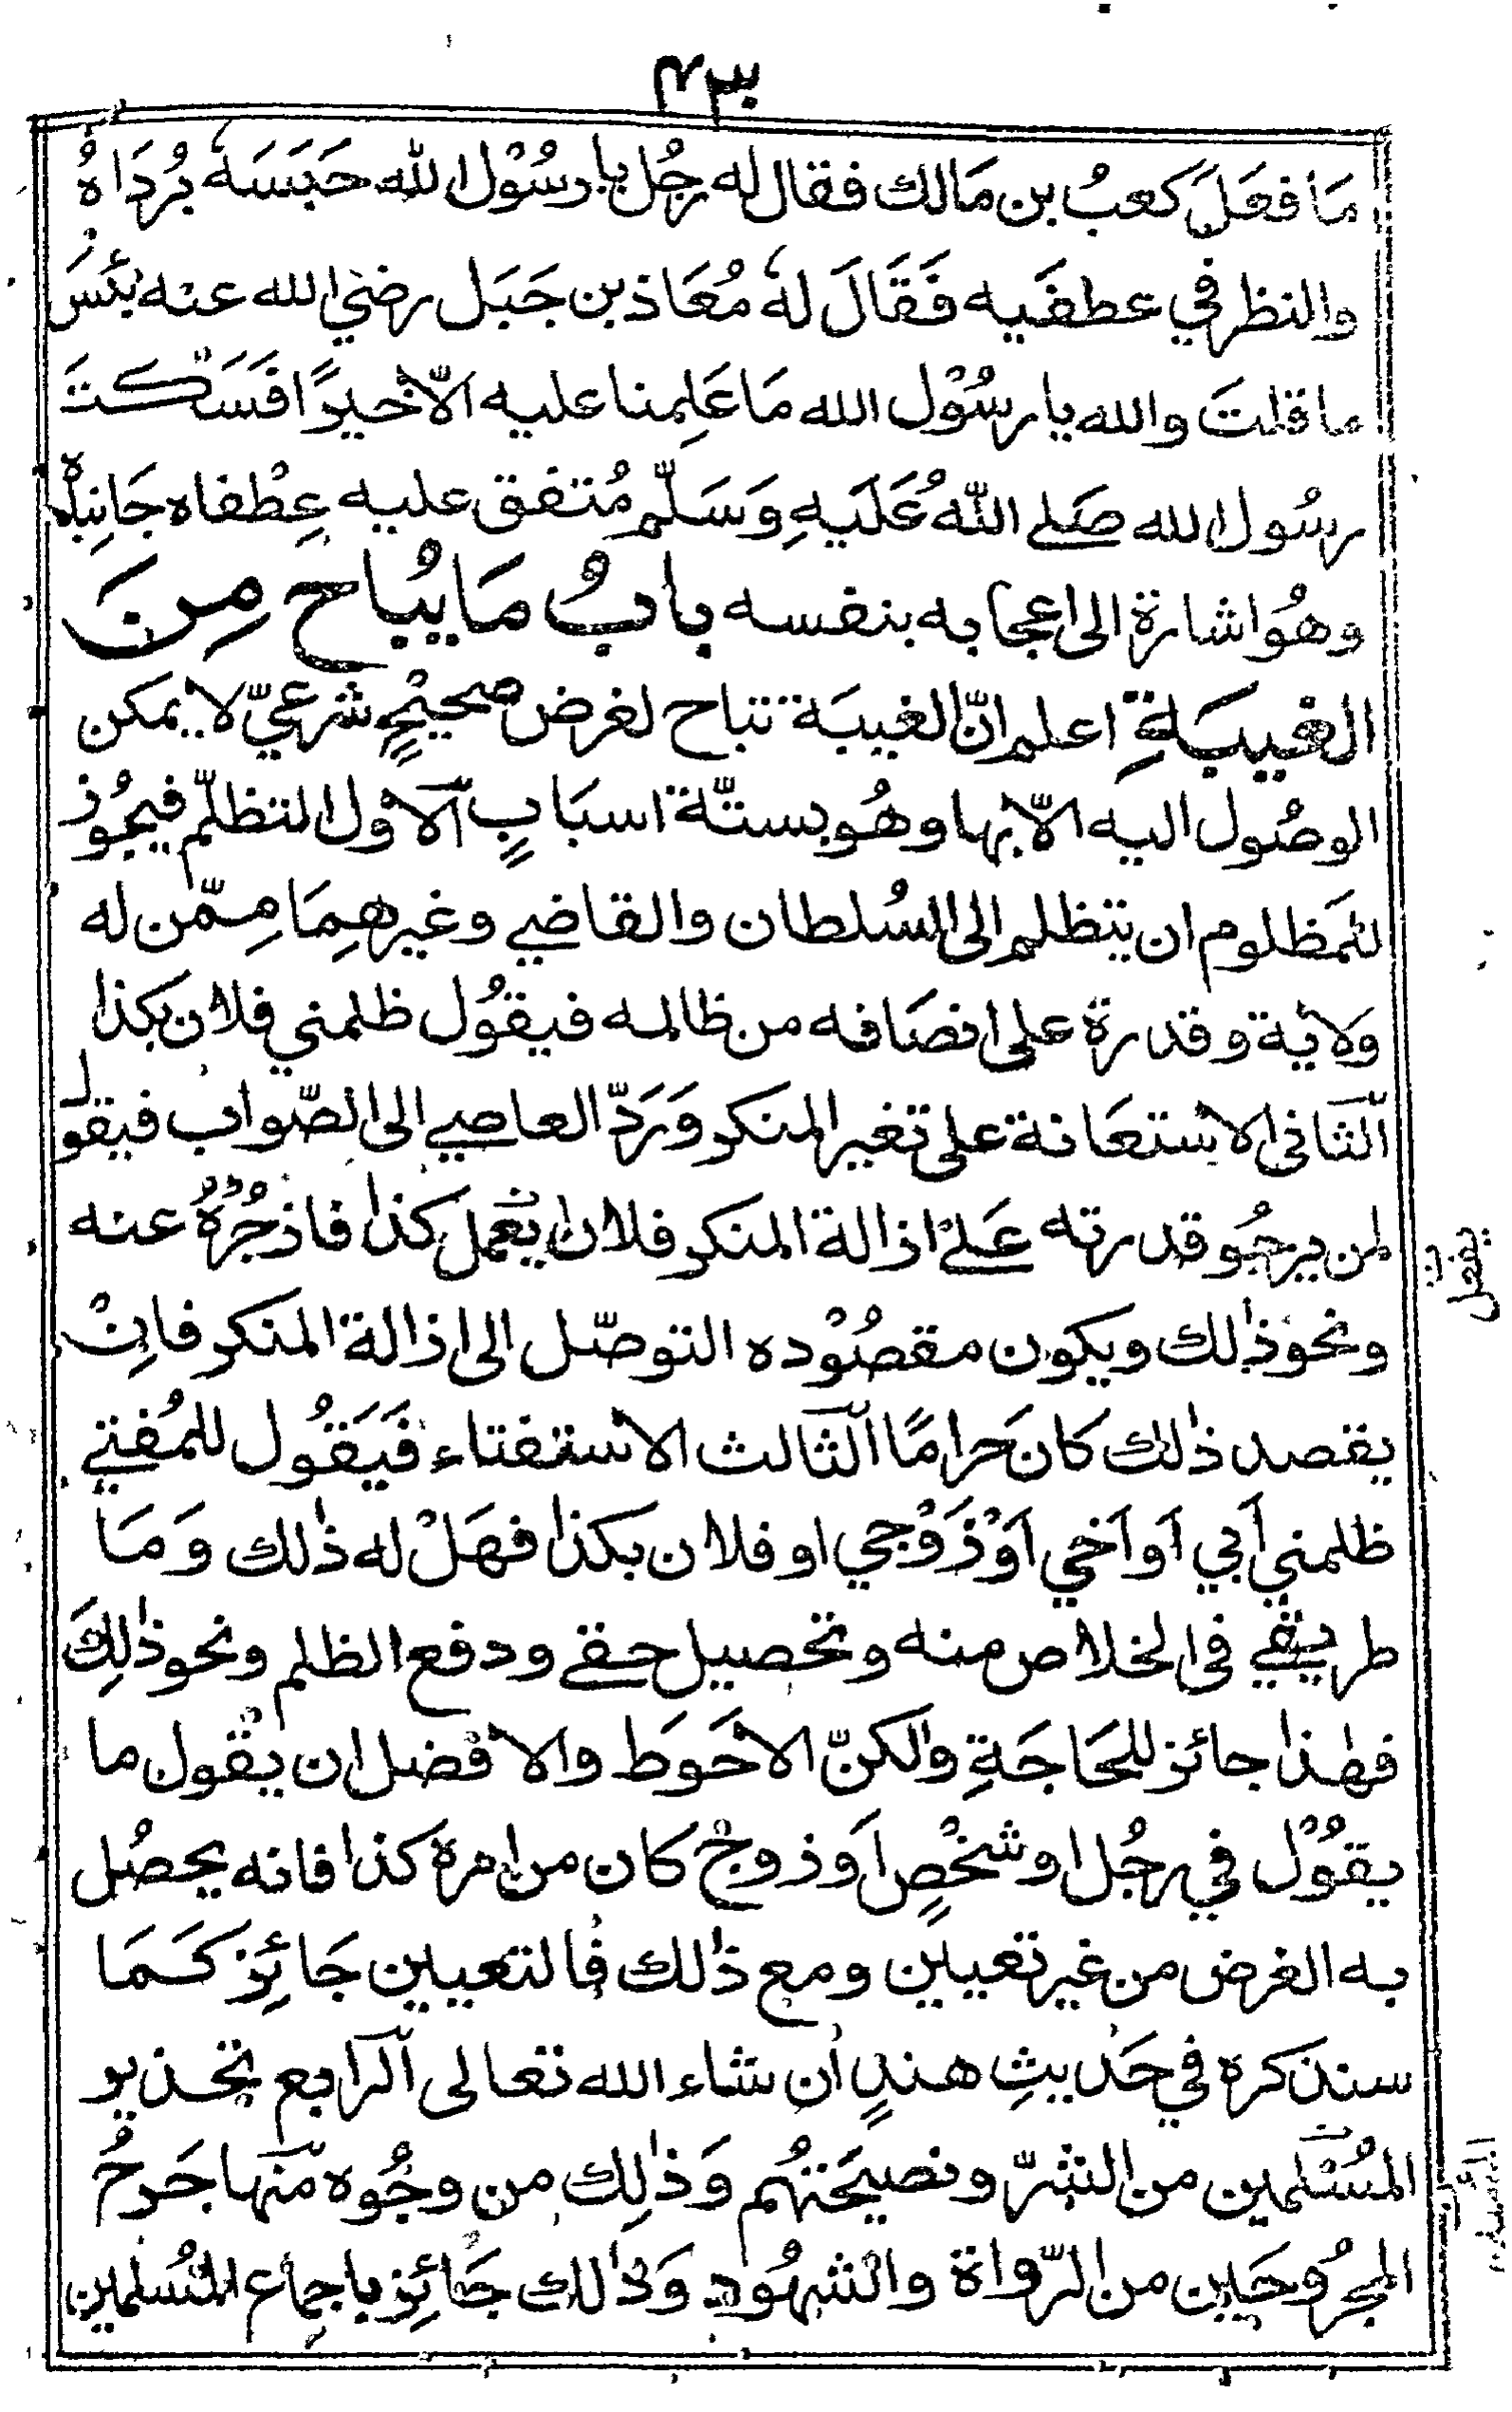 ٤٣٠
مَا فعَلَ كعبُ بن مَالك فقال له رجُل يا رسُوْل الله حَبَسَهٗ بُردَاهُ
والنظر في عطفَيه فَقَالَ لهٗ مُعَاذ بن جَبَل رضي الله عنه بئسَ
ما قلتَ والله يا رسُوْل الله مَا عَلِمنا عليه الّا خيرًا فَسَكتَ
رسُول الله صَلى اللّهُ عَلَيهِ وَسَلّم مُتفق عليه عِطْفاه جَانِبَاهُ
وهُو اشارة الى اعجابه بنفسه بابُ مَا يُباح مِنَ
الغيبَةِ اعلم انّ الغيبَة تباح لغرض صحيحٍ شرعيّ لا يمكن
الوصُول اليه الّا بها وهُو بستّة اسبَابٍ الاول التظلّم فيجُوز
للمَظلوم ان يتظلم الى السُلطان والقاضي وغيرهِمَا مِمّن له
وَلاية وقدرة على انصَافه من ظالمه فيقُول ظلمني فلان بكذا
الثاني الاستعَانة على تغير المنكر وَرَدّ العاصي الى الصّواب فيقول
لمن يرجُو قدرته عَلىٰ ازالة المنكر فلان يعمل كذا فازجُرْهُ عنه
ونحو ذٰلك ويكون مقصُوْده التوصّل الى ازالة المنكر فاِنْ
يقصد ذٰلك كان حَرامًا الثالث الاستفتاء فَيَقُول للمُفتي
ظلمني اَبي اَو اَخي اَوْ زَوْجي او فلان بكذا فهَلْ له ذٰلك وَمَا
طريقي في الخلاص منه وتحصيل حقي ودفع الظلم ونحو ذٰلِكَ
فهٰذا جائز للحَاجَةِ ولكنّ الاحَوط والافضل ان يقول ما
يقُوْل في رجُل او شخْصٍ اَو زوجْ كان من امره كذا فانه يحصُل
به الغرض من غير تعيين ومع ذٰلك فالتعيين جَائِز كَمَا
سنذكره في حَديثِ هندٍ ان شاء الله تعالى الرابع تحذير
المُسْلمين من الشرّ ونصيحَتهُم وَذٰلِك من وجُوه منها جَرحُ
المجرُوحَين من الرّواة والشهُود وَذٰلك جَائِز باجماع المُسلمين
يفعل